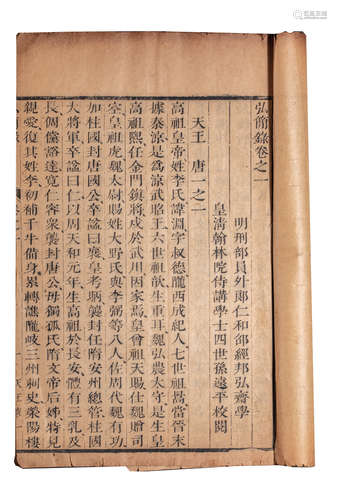 弘簡錄卷之一
明刑部員外郎仁和邵經邦弘齋學
皇清翰林院侍講學士四世孫遠平校閱
天王 唐一之一
高祖皇帝姓李氏諱淵字叔德隴西成紀人七世祖暠當晉末
據秦涼是為涼武昭王六世祖歆生重耳魏弘農太守是生皇
高祖熙任金門鎮將戍於武川因家焉皇曾祖天賜仕魏贈司
空皇祖虎魏太尉賜姓大野氏與李弼等八人佐周代魏有功
加柱國封唐國公卒諡曰襄皇考昞襲封任隋安州總管柱國
大將軍卒諡曰仁以周天和元年生高祖於長安體有三乳及
長倜儻豁達寬仁容眾襲封唐公母獨孤氏隋文帝后姊特見
親愛復其姓李初補千牛備身累轉譙隴岐三州刺史滎陽樓